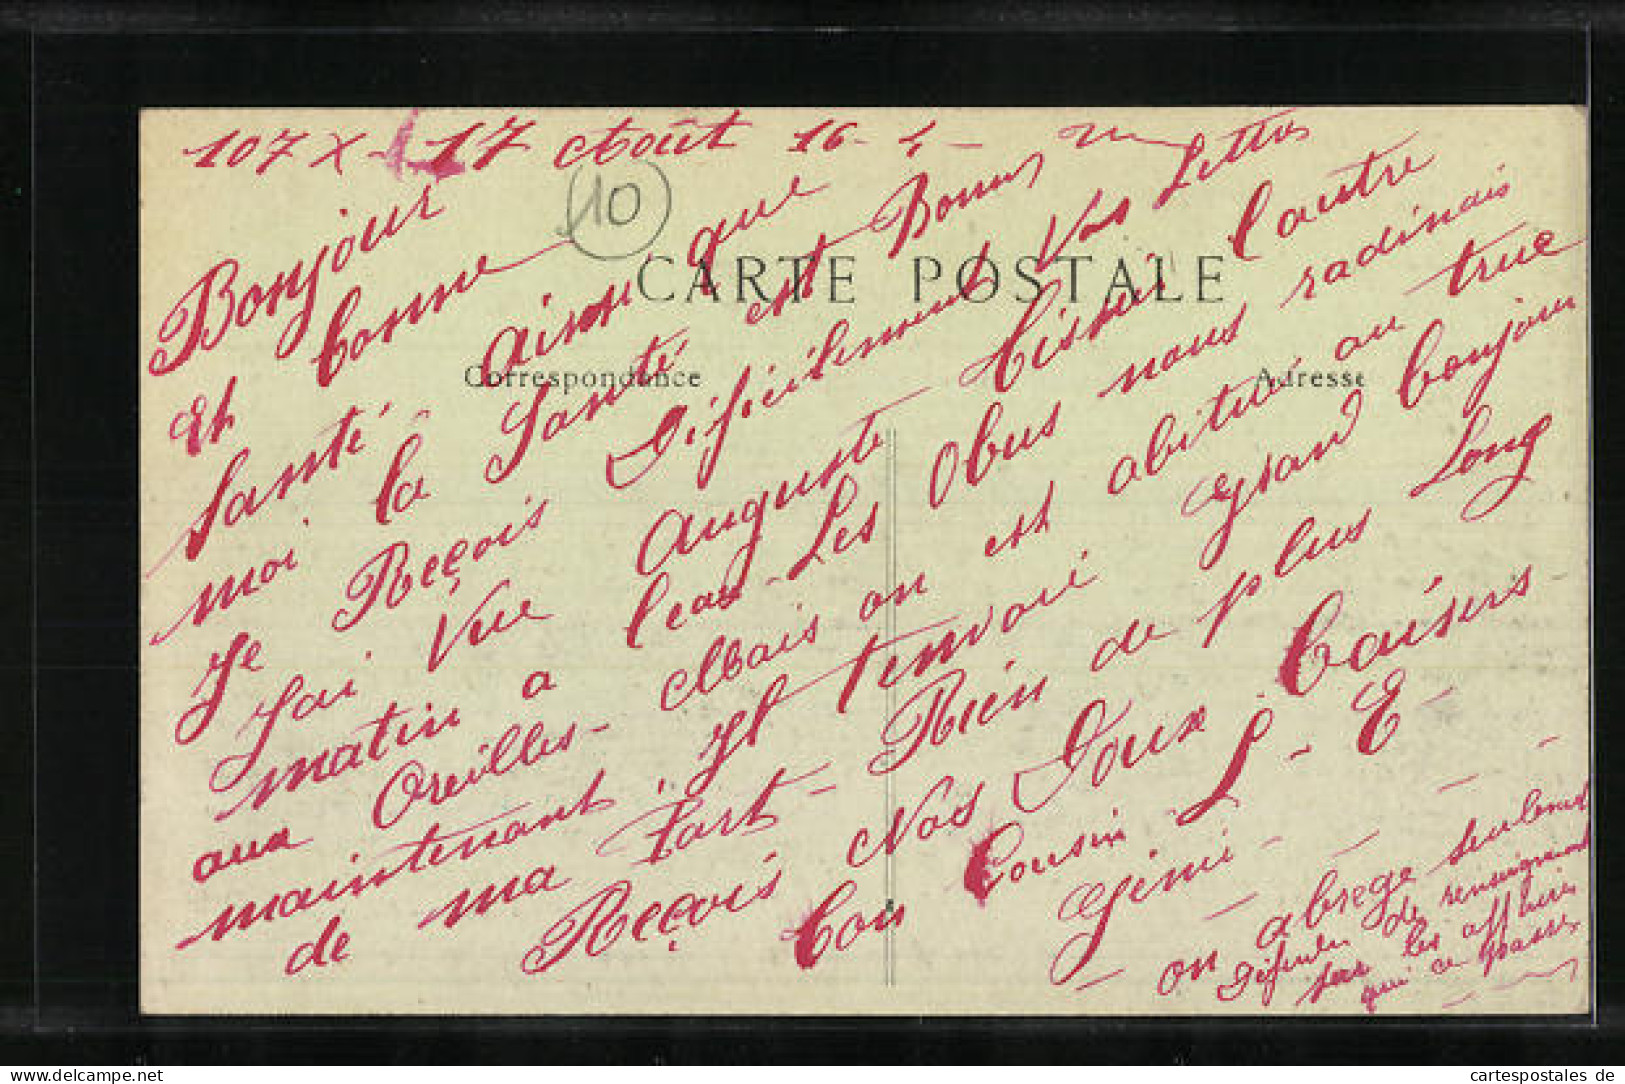 107 X - 17 Août 16 -
10
Bonjour
Et bonne
Santé - ainsi que
moi la Santé est Bonne
Je Reçois Difficilement Vos Lettres
J'ai Vue Auguste - Cissier l'autre
matin a l'eau - Les Obus nous radinais
aux Oreilles - Mais on est abitué au truc
maintenant, Il tenvoie Grand bonjour
de ma Part - Rien de plus Long
Reçois Nos Doux Baisers -
Ton Cousin L - E -
Géni -
on abrege seulement
Défendu de renseignement
sur les affaires
qui ce passes
CARTE POSTALE
Correspondance
Adresse
cartespostales de
www.delcampe.net